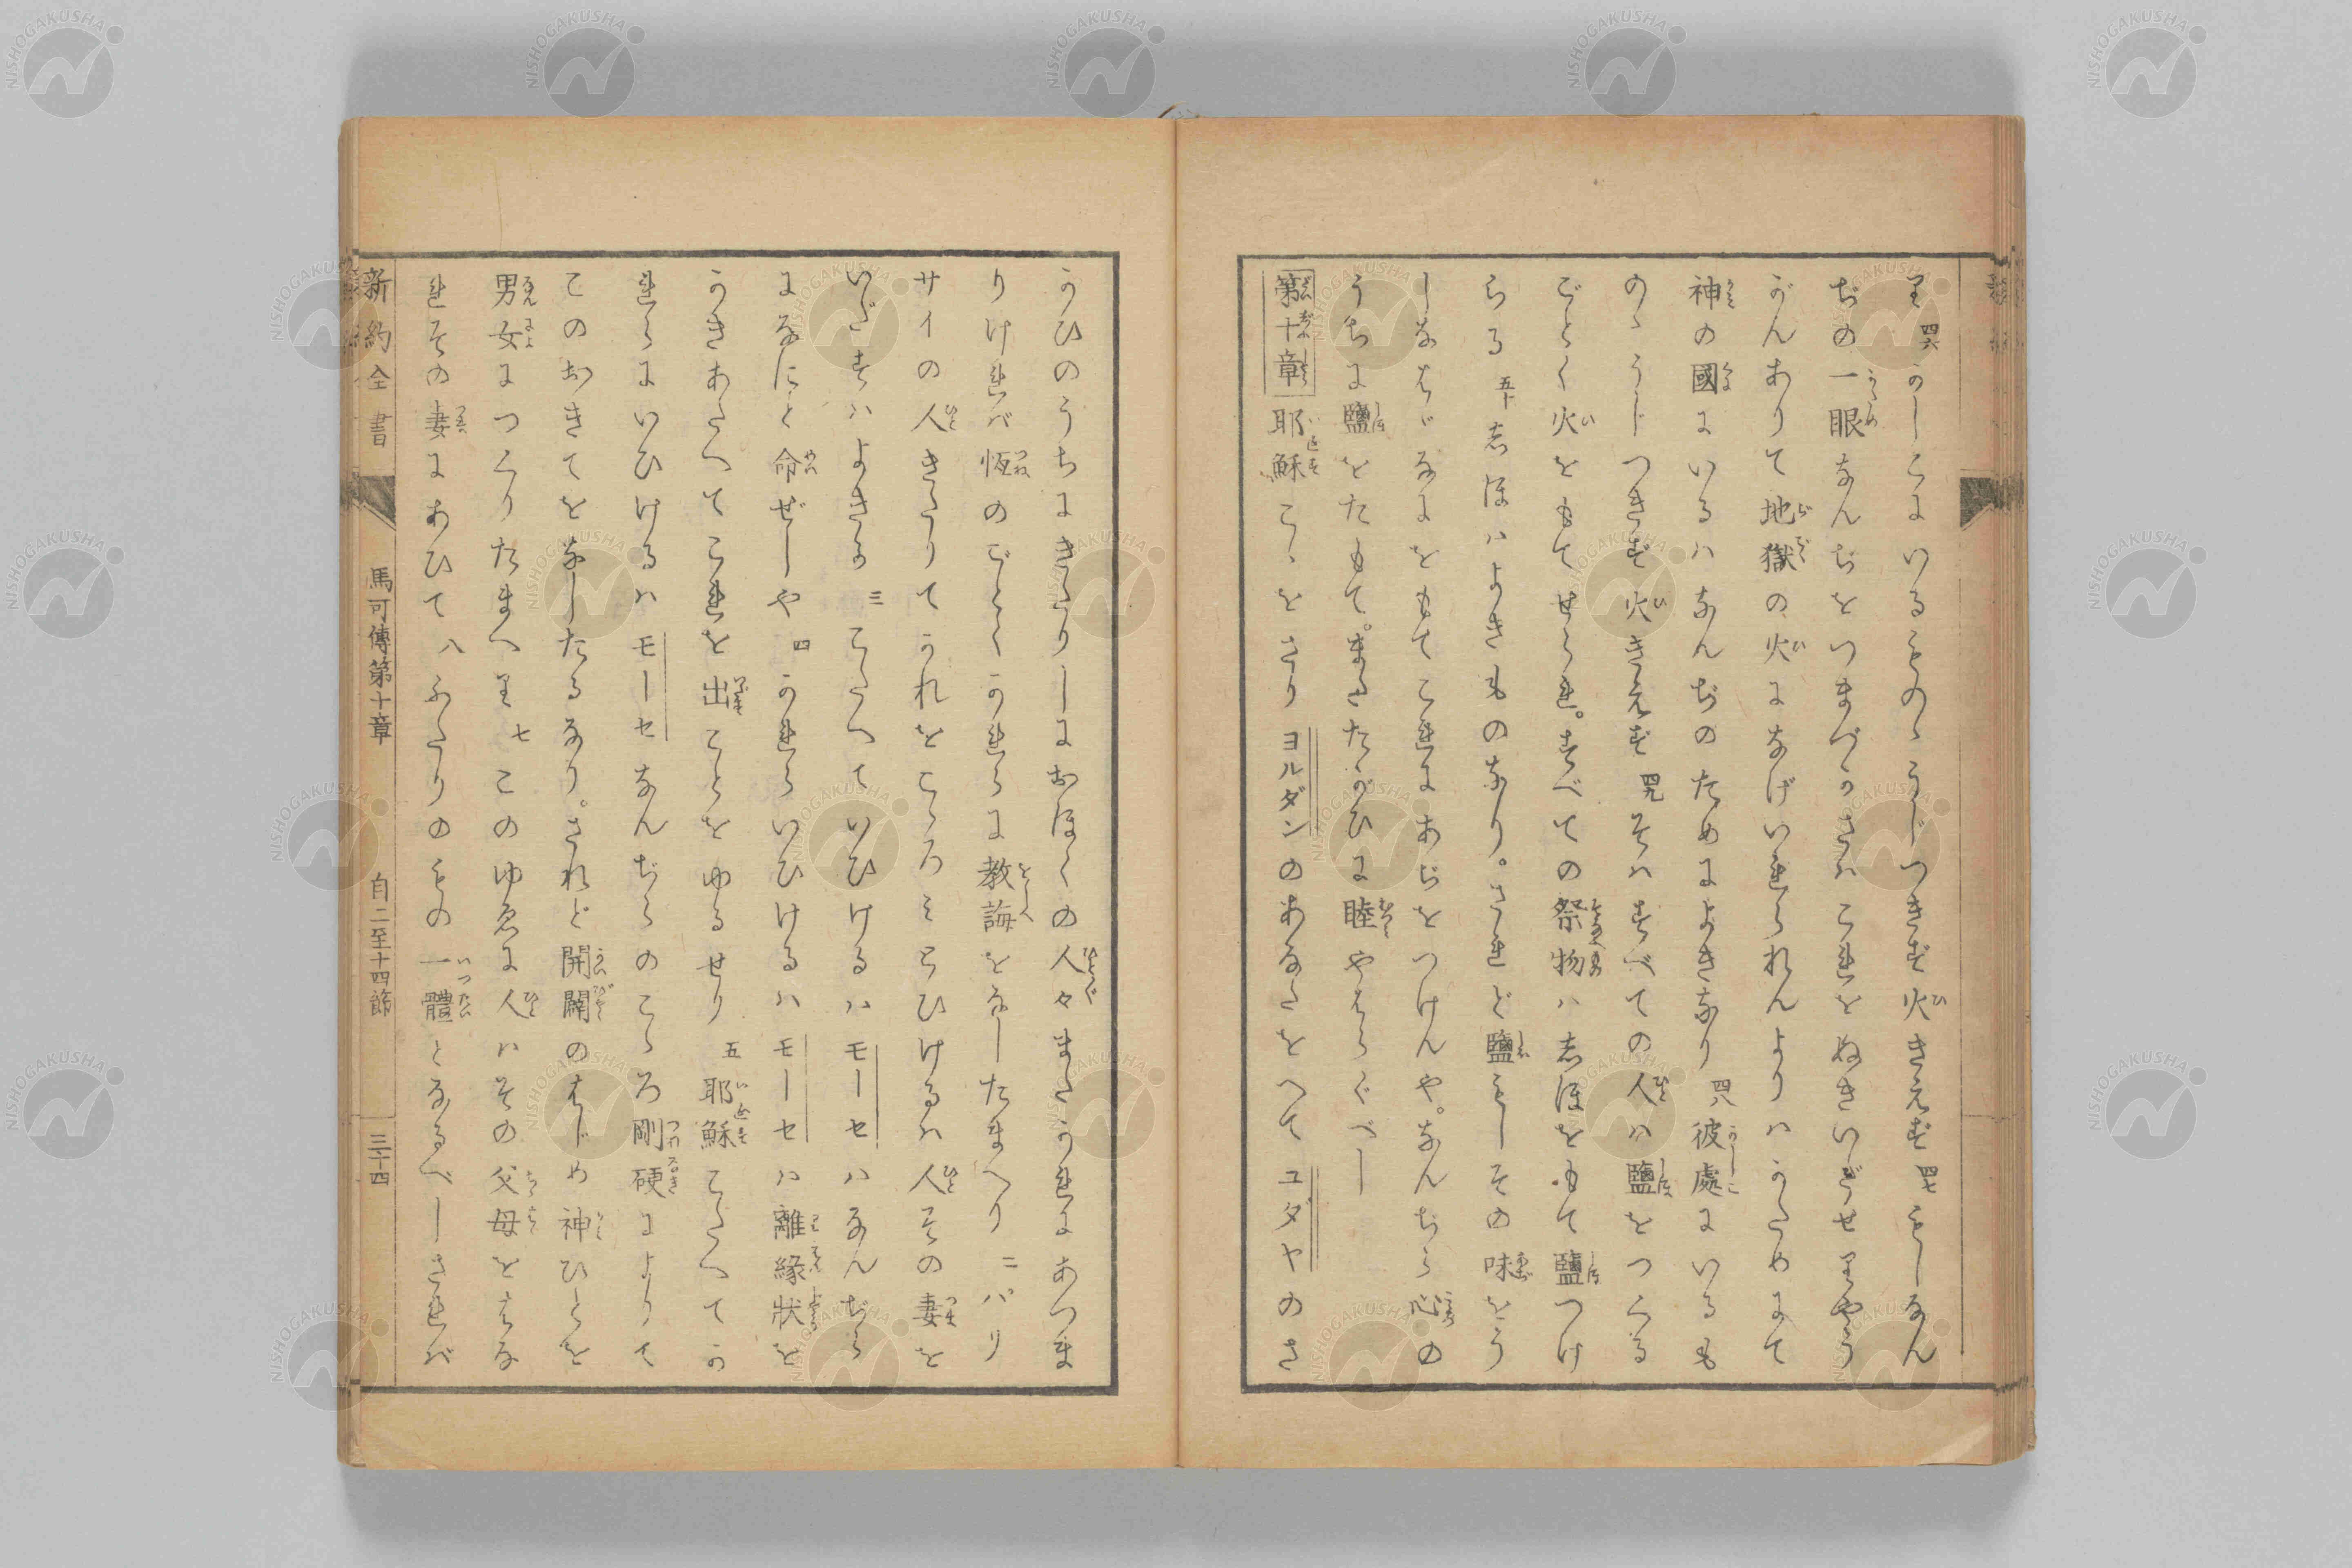 り 四六 かしこにいるものゝうじつきず火きえず 四七 もしなん
ぢの一眼なんぢをつまづかさばこれをぬきいだせ りやう
がんありて地獄の火になげいれられんよりハかためにて
神の國にいるハなんぢのためによきなり 四八 彼處にいるも
のゝうじつきず火きえず 四九 そはすべての人は鹽をつくる
ごとく火をもてせられ。すべての祭物ハしほをもて鹽つけ
らる 五十 しほハよきものなり。されど鹽もしその味をう
しなはゞなにをもてこれにあぢをつけんや。なんぢら心の
うちに鹽をたもて。またたがひに睦やはらぐべし
第十章 耶穌こゝをさりヨルダンのあなたをへてユダヤのさ
かひのうちにきたりしにおほくの人々またかれにあつま
りければ恆のごとくかれらに教誨をなしたまへり 二 パリ
サイの人きたりてかれをこゝろミとひけるは人その妻を
いだすハよきか 三 こたへていひけるハモーセハなんぢら
になにと命ぜしや 四 かれらいひけるハモーセハ離緣狀を
かきあたへてこれを出ことをゆるせり 五 耶穌こたへてか
れらにいひけるハモーセなんぢらのこゝろ剛硬によりて
このおきてをなしたるなり。されど開闢のはじめ神ひとを
男女につくりたまへり 七 このゆゑに人ハその父母をはな
れその妻にあひて 八 ふたりのもの一體となるべしされば
新約全書 馬可傳第十章 自二至十四節 三十四